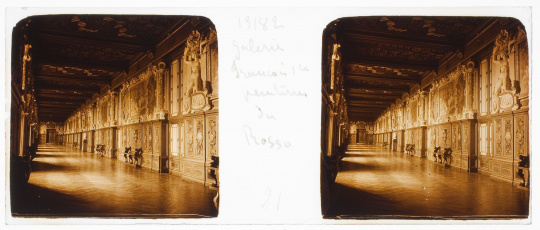 19182
Galerie
François 1e
peintures
du
Rosso
21